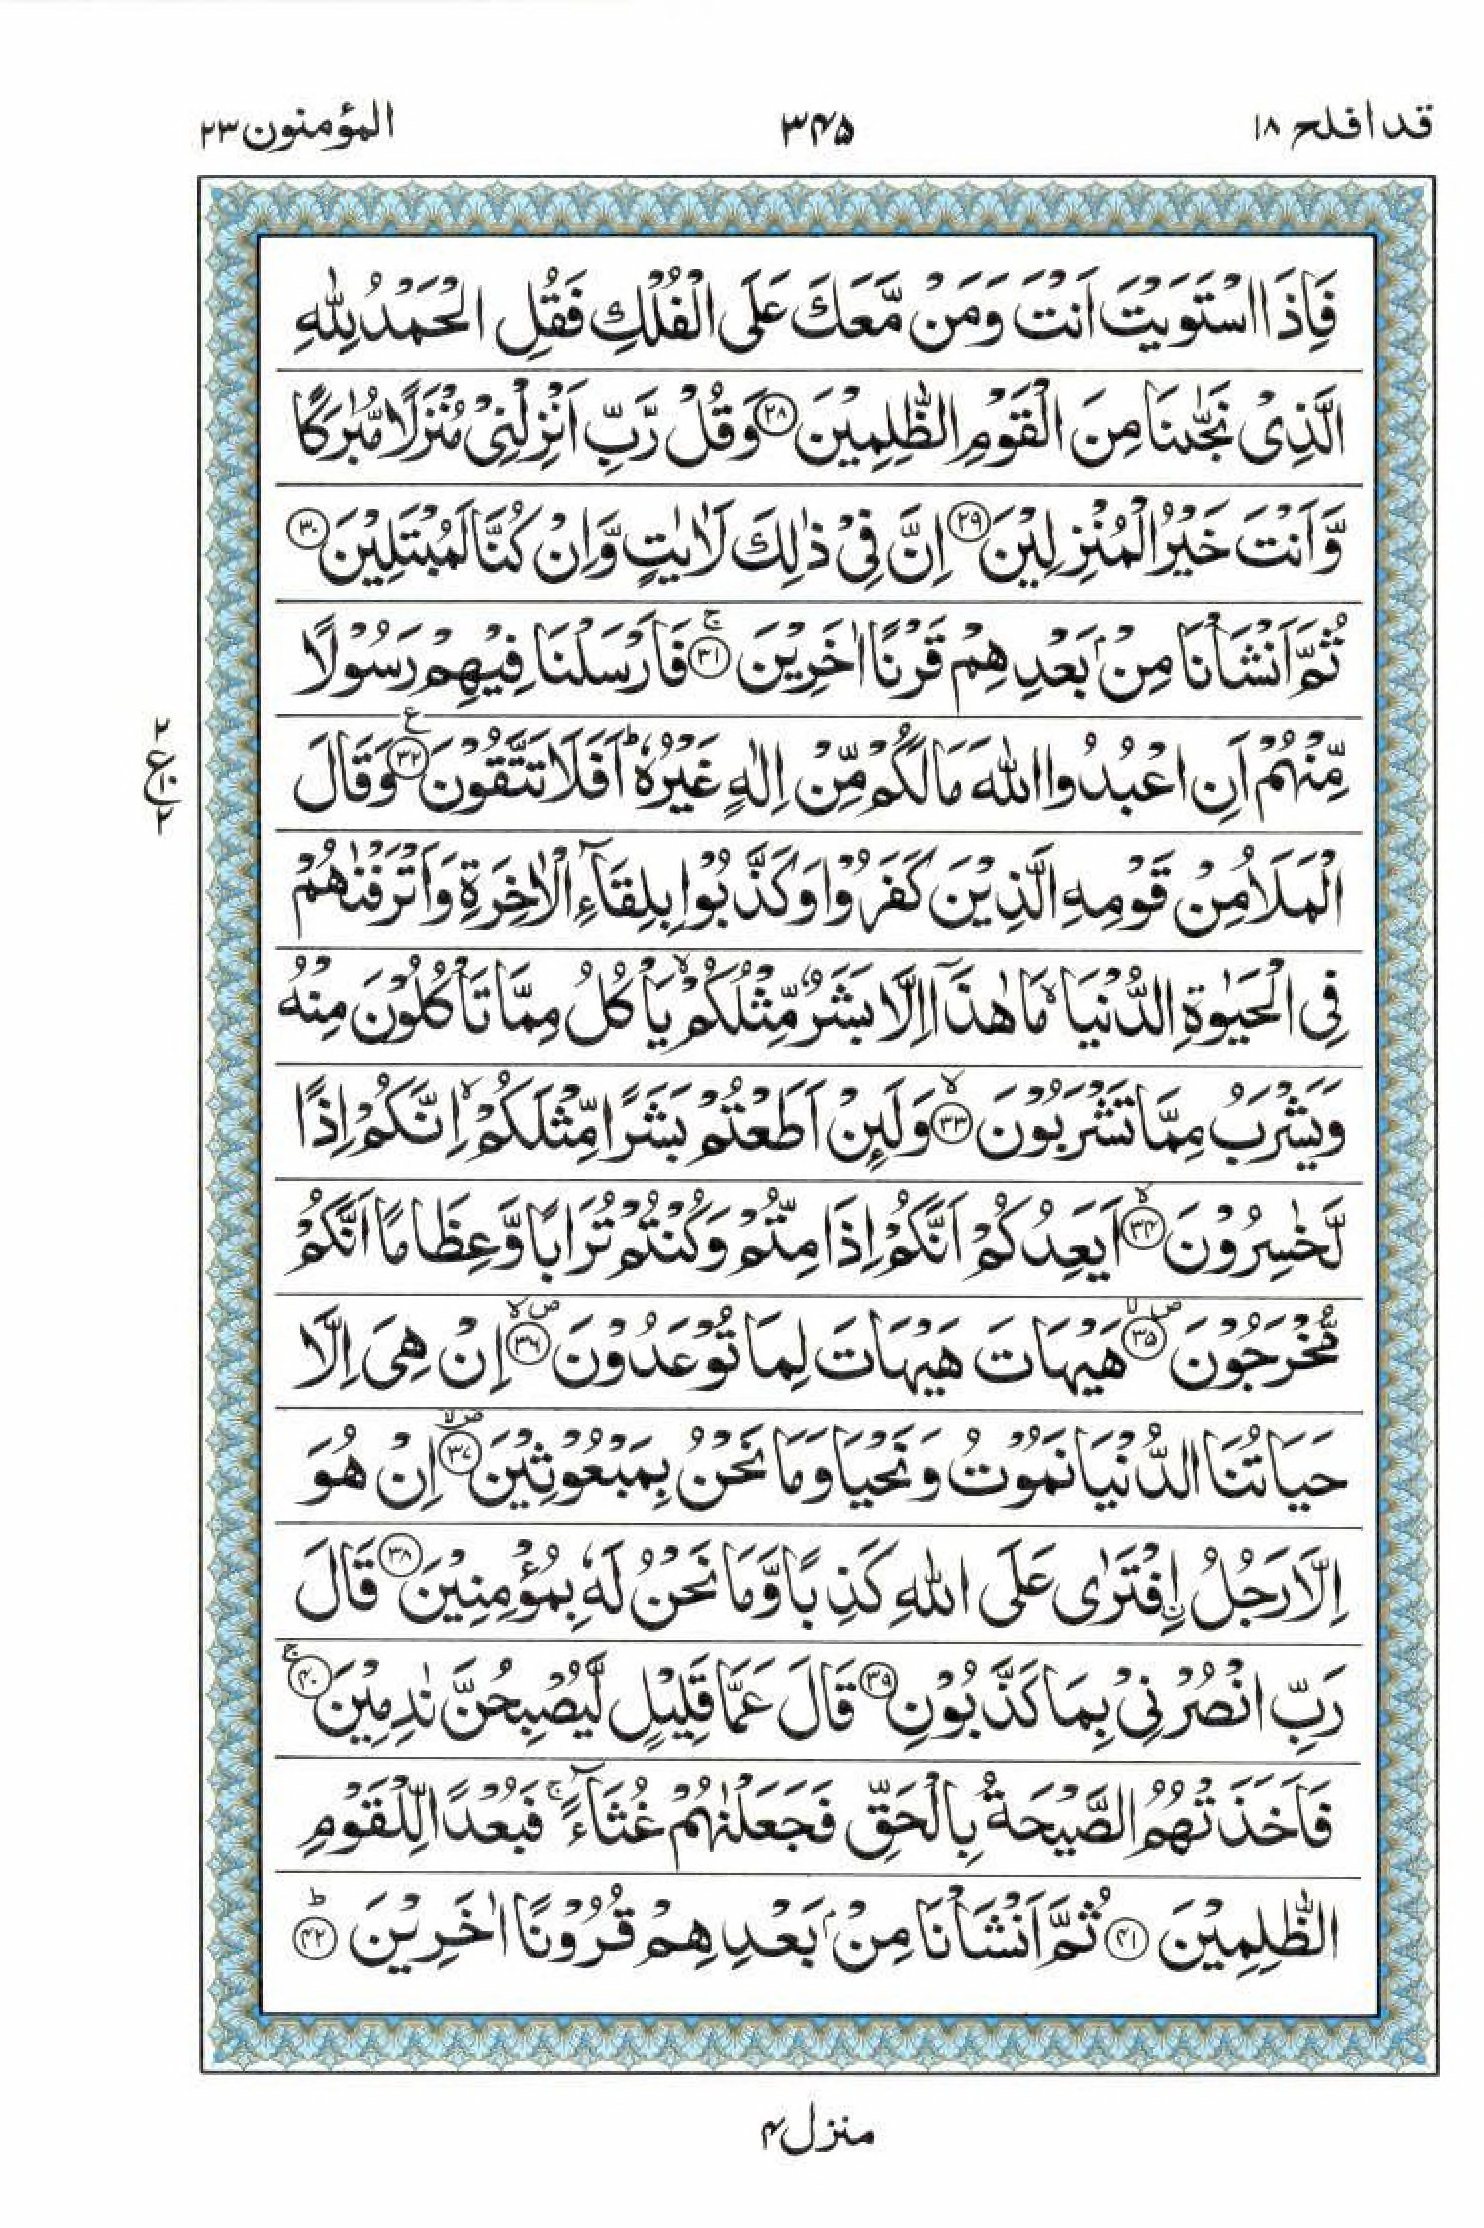 قد افلح ۱۸
۳۴۵
المؤمنون ۲۳
فَاِذَا اسْتَوَیْتَ اَنْتَ وَمَنْ مَّعَكَ عَلَی الْفُلْكِ فَقُلِ الْحَمْدُ لِلّٰهِ
الَّذِیْ نَجّٰىنَا مِنَ الْقَوْمِ الظّٰلِمِیْنَ ﴿۲۸﴾ وَقُلْ رَّبِّ اَنْزِلْنِیْ مُنْزَلًا مُّبٰرَكًا
وَّاَنْتَ خَیْرُ الْمُنْزِلِیْنَ ﴿۲۹﴾ اِنَّ فِیْ ذٰلِكَ لَاٰیٰتٍ وَّاِنْ كُنَّا لَمُبْتَلِیْنَ ﴿۳۰﴾
ثُمَّ اَنْشَاْنَا مِنْۢ بَعْدِهِمْ قَرْنًا اٰخَرِیْنَ ﴿۳۱﴾ۚ فَاَرْسَلْنَا فِیْهِمْ رَسُوْلًا
مِّنْهُمْ اَنِ اعْبُدُوا اللّٰهَ مَا لَكُمْ مِّنْ اِلٰهٍ غَیْرُهٗ ؕ اَفَلَا تَتَّقُوْنَ ﴿۳۲﴾ وَقَالَ
ع
۲
ع ۱۰
۲
الْمَلَاُ مِنْ قَوْمِهِ الَّذِیْنَ كَفَرُوْا وَكَذَّبُوْا بِلِقَآءِ الْاٰخِرَةِ وَاَتْرَفْنٰهُمْ
فِی الْحَیٰوةِ الدُّنْیَا ۙ مَا هٰذَاۤ اِلَّا بَشَرٌ مِّثْلُكُمْ ۙ یَاْكُلُ مِمَّا تَاْكُلُوْنَ مِنْهُ
وَیَشْرَبُ مِمَّا تَشْرَبُوْنَ ﴿۳۳﴾ۙ وَلَىِٕنْ اَطَعْتُمْ بَشَرًا مِّثْلَكُمْ ۙ اِنَّكُمْ اِذًا
لَّخٰسِرُوْنَ ﴿۳۴﴾ۙ اَیَعِدُكُمْ اَنَّكُمْ اِذَا مِتُّمْ وَكُنْتُمْ تُرَابًا وَّعِظَامًا اَنَّكُمْ
مُّخْرَجُوْنَ ﴿۳۵﴾ صلا هَیْهَاتَ هَیْهَاتَ لِمَا تُوْعَدُوْنَ ﴿۳۶﴾ صلا اِنْ هِیَ اِلَّا
حَیَاتُنَا الدُّنْیَا نَمُوْتُ وَنَحْیَا وَمَا نَحْنُ بِمَبْعُوْثِیْنَ ﴿۳۷﴾ صلا اِنْ هُوَ
اِلَّا رَجُلُ ِ۟افْتَرٰی عَلَی اللّٰهِ كَذِبًا وَّمَا نَحْنُ لَهٗ بِمُؤْمِنِیْنَ ﴿۳۸﴾ قَالَ
رَبِّ انْصُرْنِیْ بِمَا كَذَّبُوْنِ ﴿۳۹﴾ قَالَ عَمَّا قَلِیْلٍ لَّیُصْبِحُنَّ نٰدِمِیْنَ ﴿۴۰﴾ۚ
فَاَخَذَتْهُمُ الصَّیْحَةُ بِالْحَقِّ فَجَعَلْنٰهُمْ غُثَآءً ۚ فَبُعْدًا لِّلْقَوْمِ
الظّٰلِمِیْنَ ﴿۴۱﴾ ثُمَّ اَنْشَاْنَا مِنْۢ بَعْدِهِمْ قُرُوْنًا اٰخَرِیْنَ ﴿۴۲﴾ؕ
منزل ۴